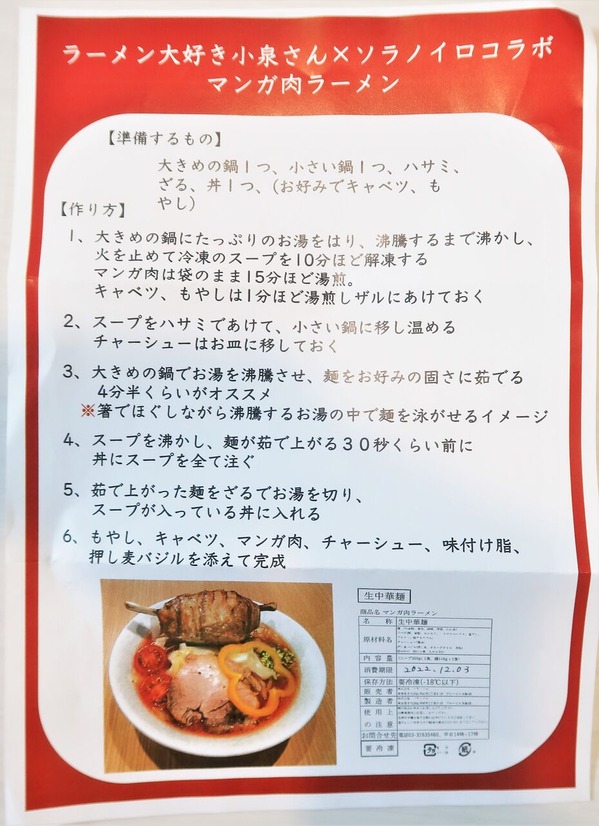 ラーメン大好き小泉さん×ソラノイロコラボ
マンガ肉ラーメン
【準備するもの】
大きめの鍋1つ、小さい鍋1つ、ハサミ、
ざる、丼1つ、(お好みでキャベツ、も
やし)
【作り方】
1、大きめの鍋にたっぷりのお湯をはり、沸騰するまで沸かし、
火を止めて冷凍のスープを10分ほど解凍する
マンガ肉は袋のまま15分ほど湯煎。
キャベツ、もやしは1分ほど湯煎しザルにあけておく
2、スープをハサミであけて、小さい鍋に移し温める
チャーシューはお皿に移しておく
3、大きめの鍋でお湯を沸騰させ、麺をお好みの固さに茹でる
4分半くらいがオススメ
※箸でほぐしながら沸騰するお湯の中で麺を泳がせるイメージ
4、スープを沸かし、麺が茹で上がる30秒くらい前に
丼にスープを全て注ぐ
5、茹で上がった麺をざるでお湯を切り、
スープが入っている丼に入れる
6、もやし、キャベツ、マンガ肉、チャーシュー、味付け脂、
押し麦バジルを添えて完成
生中華麺
商品名 マンガ肉ラーメン
名称 生中華麺
原材料名
内容量
消費期限 2022.12.03
保存方法 要冷凍(-18℃以下)
販売者
製造者
使用上の注意
お問合せ先
要冷凍